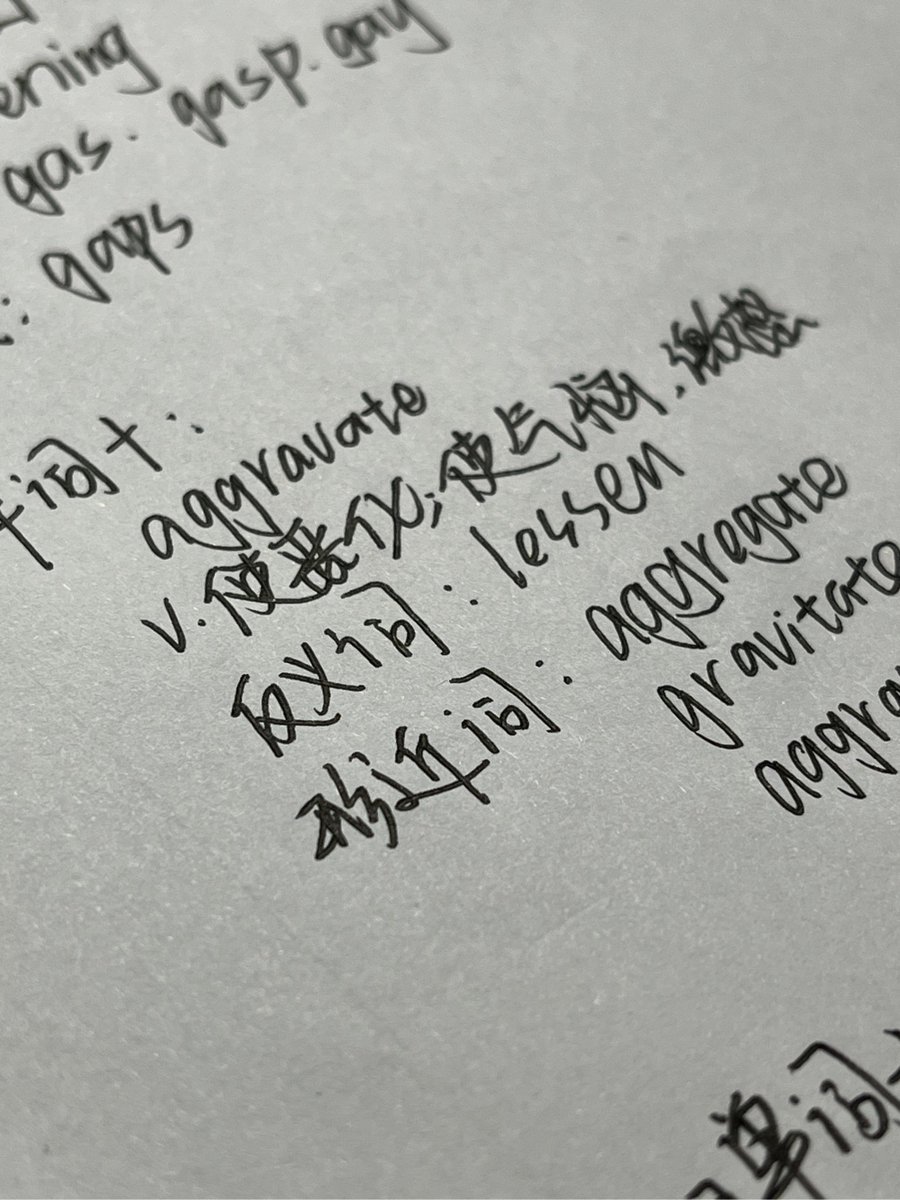 ening
gas. gasp. gay
: gaps
词十:
aggravate
v. 使恶化; 使气恼, 激怒
反义词: lessen
形近词: aggregate
gravitate
aggra
单词